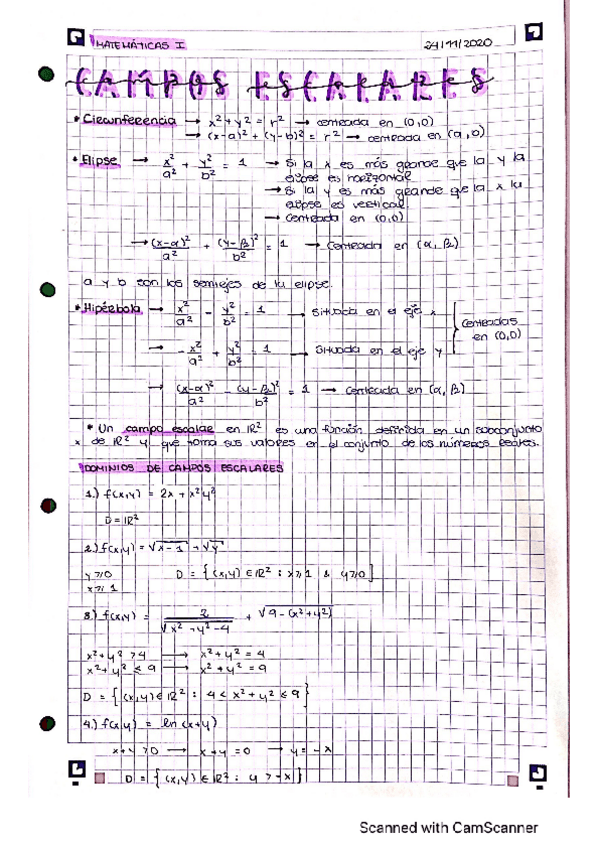 MATEMÁTICAS I
24/11/2020
CAMPOS ESCALARES
• Circunferencia → x² + y² = r² → centrada en (0,0)
→ (x-a)² + (y-b)² = r² → centrada en (a, b)
• Elipse → x²/a² + y²/b² = 1 → Si la x es más grande que la y la
elipse es horizontal
→ Si la y es más grande que la x la
elipse es vertical
→ centrada en (0,0)
→ (x-α)²/a² + (y-β)²/b² = 1 → centrada en (α, β)
a y b son los semiejes de la elipse.
• Hipérbola → x²/a² - y²/b² = 1 → Situada en el eje x
→ -x²/a² + y²/b² = 1 → Situada en el eje y
centradas
en (0,0)
→ (x-α)²/a² - (y-β)²/b² = 1 → centrada en (α, β)
• Un campo escalar en ℝ² es una función definida en un subconjunto
x de ℝ² y que toma sus valores en el conjunto de los números reales.
DOMINIOS DE CAMPOS ESCALARES
1.) f(x,y) = 2x + x²y²
D = ℝ²
2.) f(x,y) = √x-1 + √y
y ≥ 0
x ≥ 1
D = { (x,y) ∈ ℝ² : x ≥ 1 & y ≥ 0 }
3.) f(x,y) = 2/√x² + y² - 4 + √9 - (x² + y²)
x² + y² > 4 → x² + y² = 4
x² + y² ≤ 9 → x² + y² = 9
D = { (x,y) ∈ ℝ² : 4 < x² + y² ≤ 9 }
4.) f(x,y) = ln (x+y)
x + y > 0 → x + y = 0 → y = -x
D = { (x,y) ∈ ℝ² : y > -x }
Scanned with CamScanner